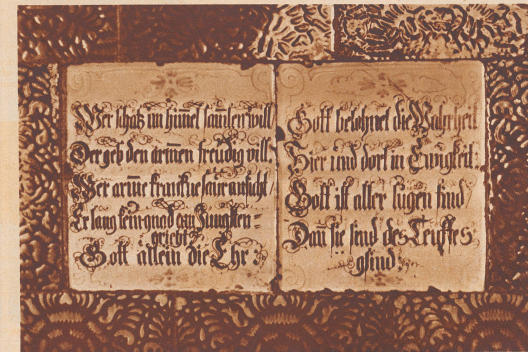 Wer schatz im himel samlen will
Der geb den armen freudig vill.
Wer arme krancke saur ansicht/
Er lang kein gnad am Jungsten=
gricht
Gott allein die Ehr
Gott belohnet die Wahrheit
Hier und dort in Ewigkeit.
Gott ist aller lugen find/
Dañ sie send des Teuffes
gsind